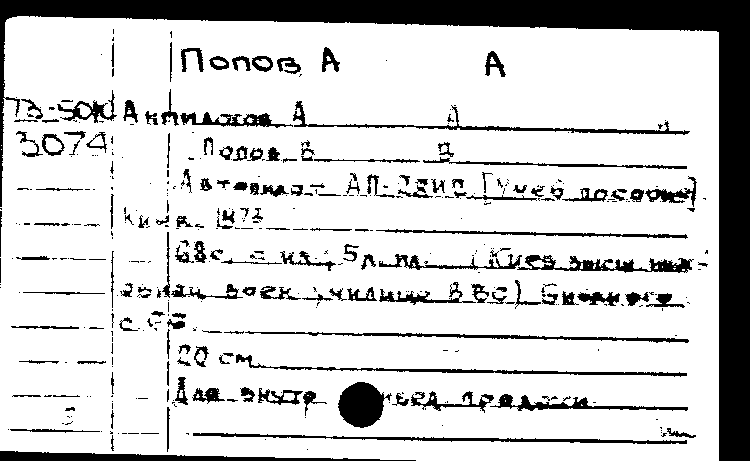 Попов А А
ТЗ-50К Анпилогов А А и
3074 Попов В В
Автопилот АП-28И2 [Учеб пособие]
Киев. 1973
68с. с ил., 5 л. ил. (Киев высш инж-
авиац воен училище ВВС) Библиогр
с 66.
20 см
Для внутр ведом продажи